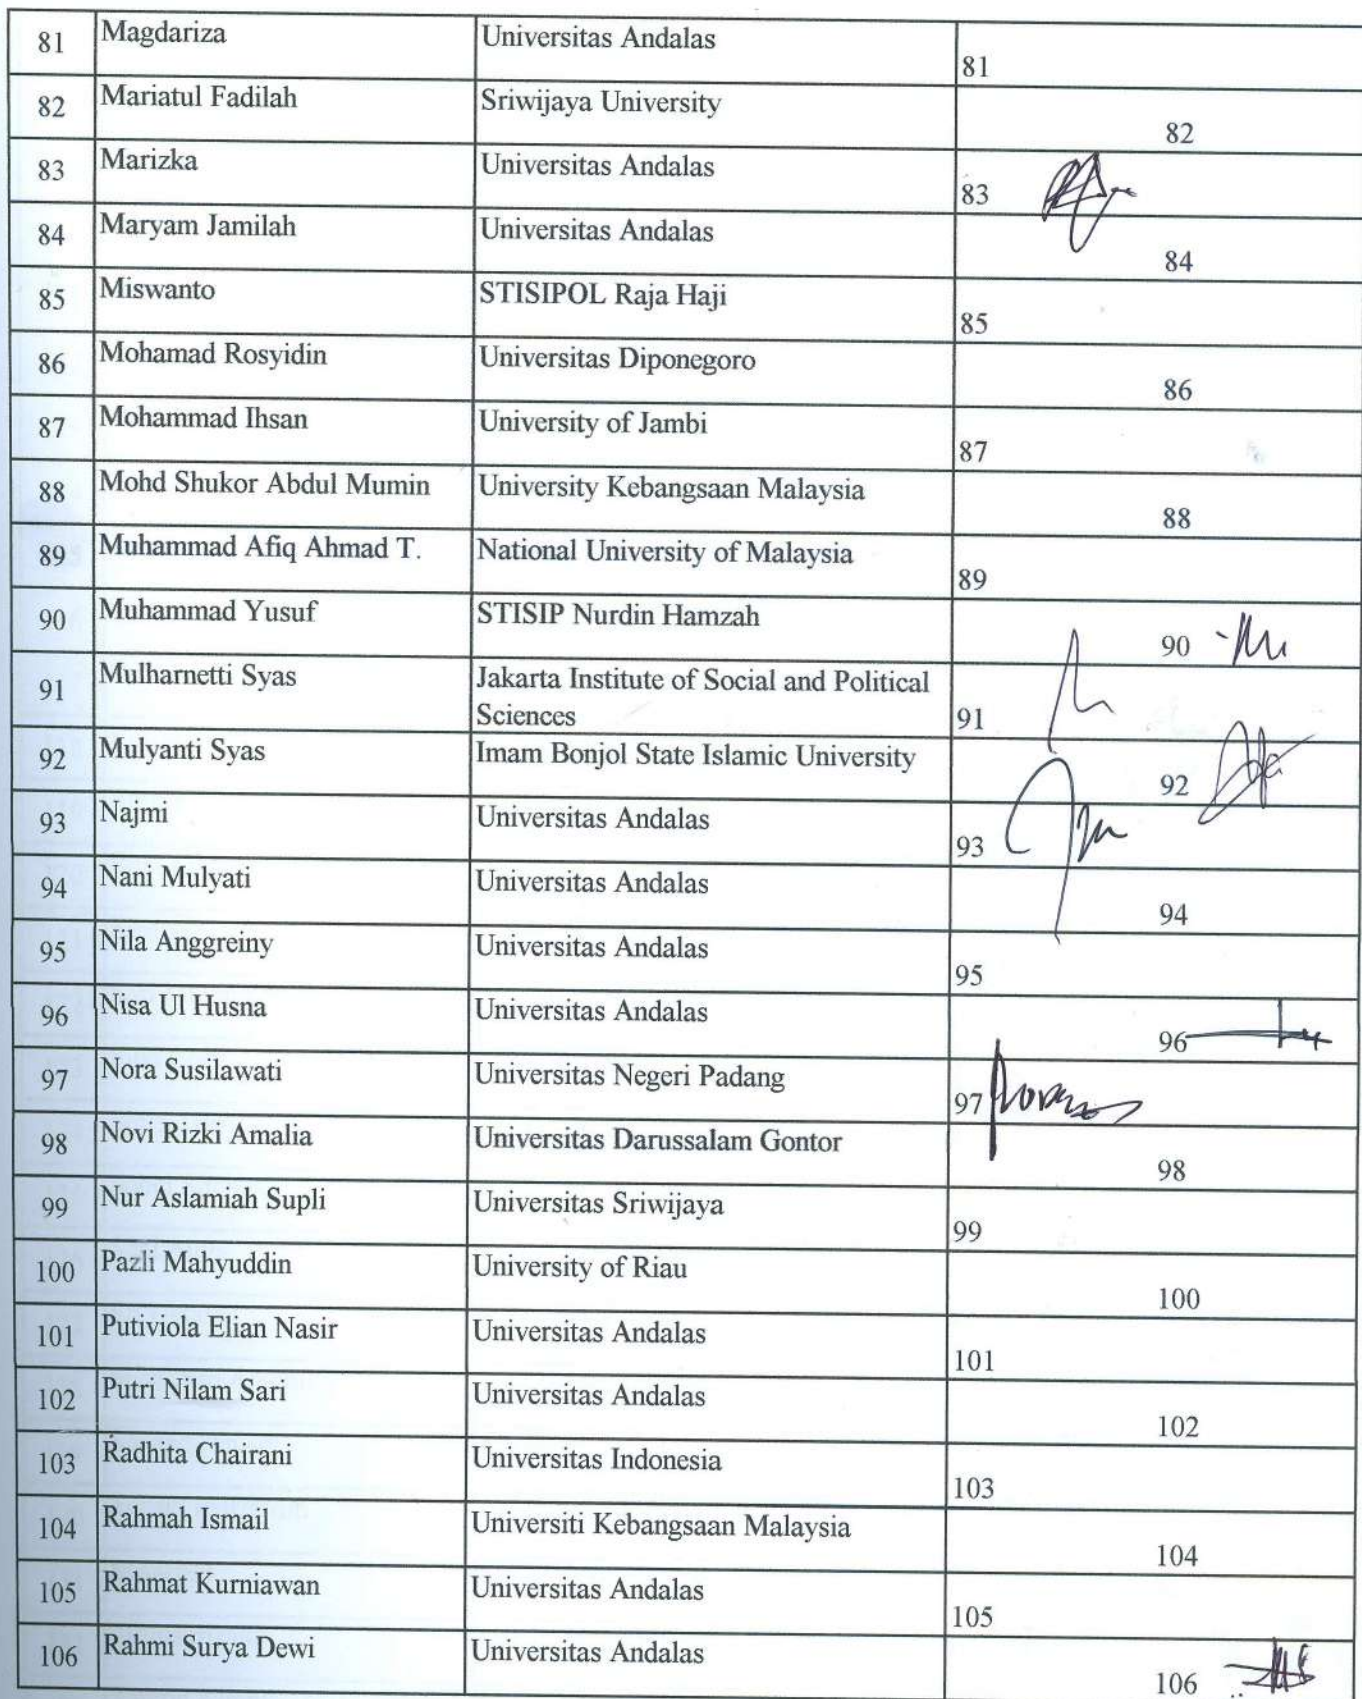 81 Magdariza Universitas Andalas 81
82 Mariatul Fadilah Sriwijaya University 82
83 Marizka Universitas Andalas 83
84 Maryam Jamilah Universitas Andalas 84
85 Miswanto STISIPOL Raja Haji 85
86 Mohamad Rosyidin Universitas Diponegoro 86
87 Mohammad Ihsan University of Jambi 87
88 Mohd Shukor Abdul Mumin University Kebangsaan Malaysia 88
89 Muhammad Afiq Ahmad T. National University of Malaysia 89
90 Muhammad Yusuf STISIP Nurdin Hamzah 90
91 Mulharnetti Syas Jakarta Institute of Social and Political
Sciences 91
92 Mulyanti Syas Imam Bonjol State Islamic University 92
93 Najmi Universitas Andalas 93
94 Nani Mulyati Universitas Andalas 94
95 Nila Anggreiny Universitas Andalas 95
96 Nisa Ul Husna Universitas Andalas 96
97 Nora Susilawati Universitas Negeri Padang 97
98 Novi Rizki Amalia Universitas Darussalam Gontor 98
99 Nur Aslamiah Supli Universitas Sriwijaya 99
100 Pazli Mahyuddin University of Riau 100
101 Putiviola Elian Nasir Universitas Andalas 101
102 Putri Nilam Sari Universitas Andalas 102
103 Radhita Chairani Universitas Indonesia 103
104 Rahmah Ismail Universiti Kebangsaan Malaysia 104
105 Rahmat Kurniawan Universitas Andalas 105
106 Rahmi Surya Dewi Universitas Andalas 106